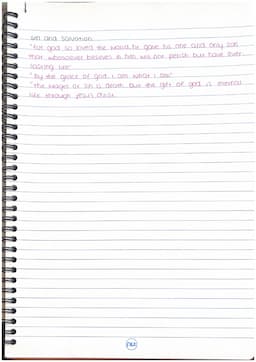 sin and salvation
"for god so loved the world, he gave his one and only son
that whosoever believes in him will not perish but have ever-
lasting life"
"By the grace of god, I am what I am"
"The wages of sin is death but the gift of god is eternal
life through Jesus Christ